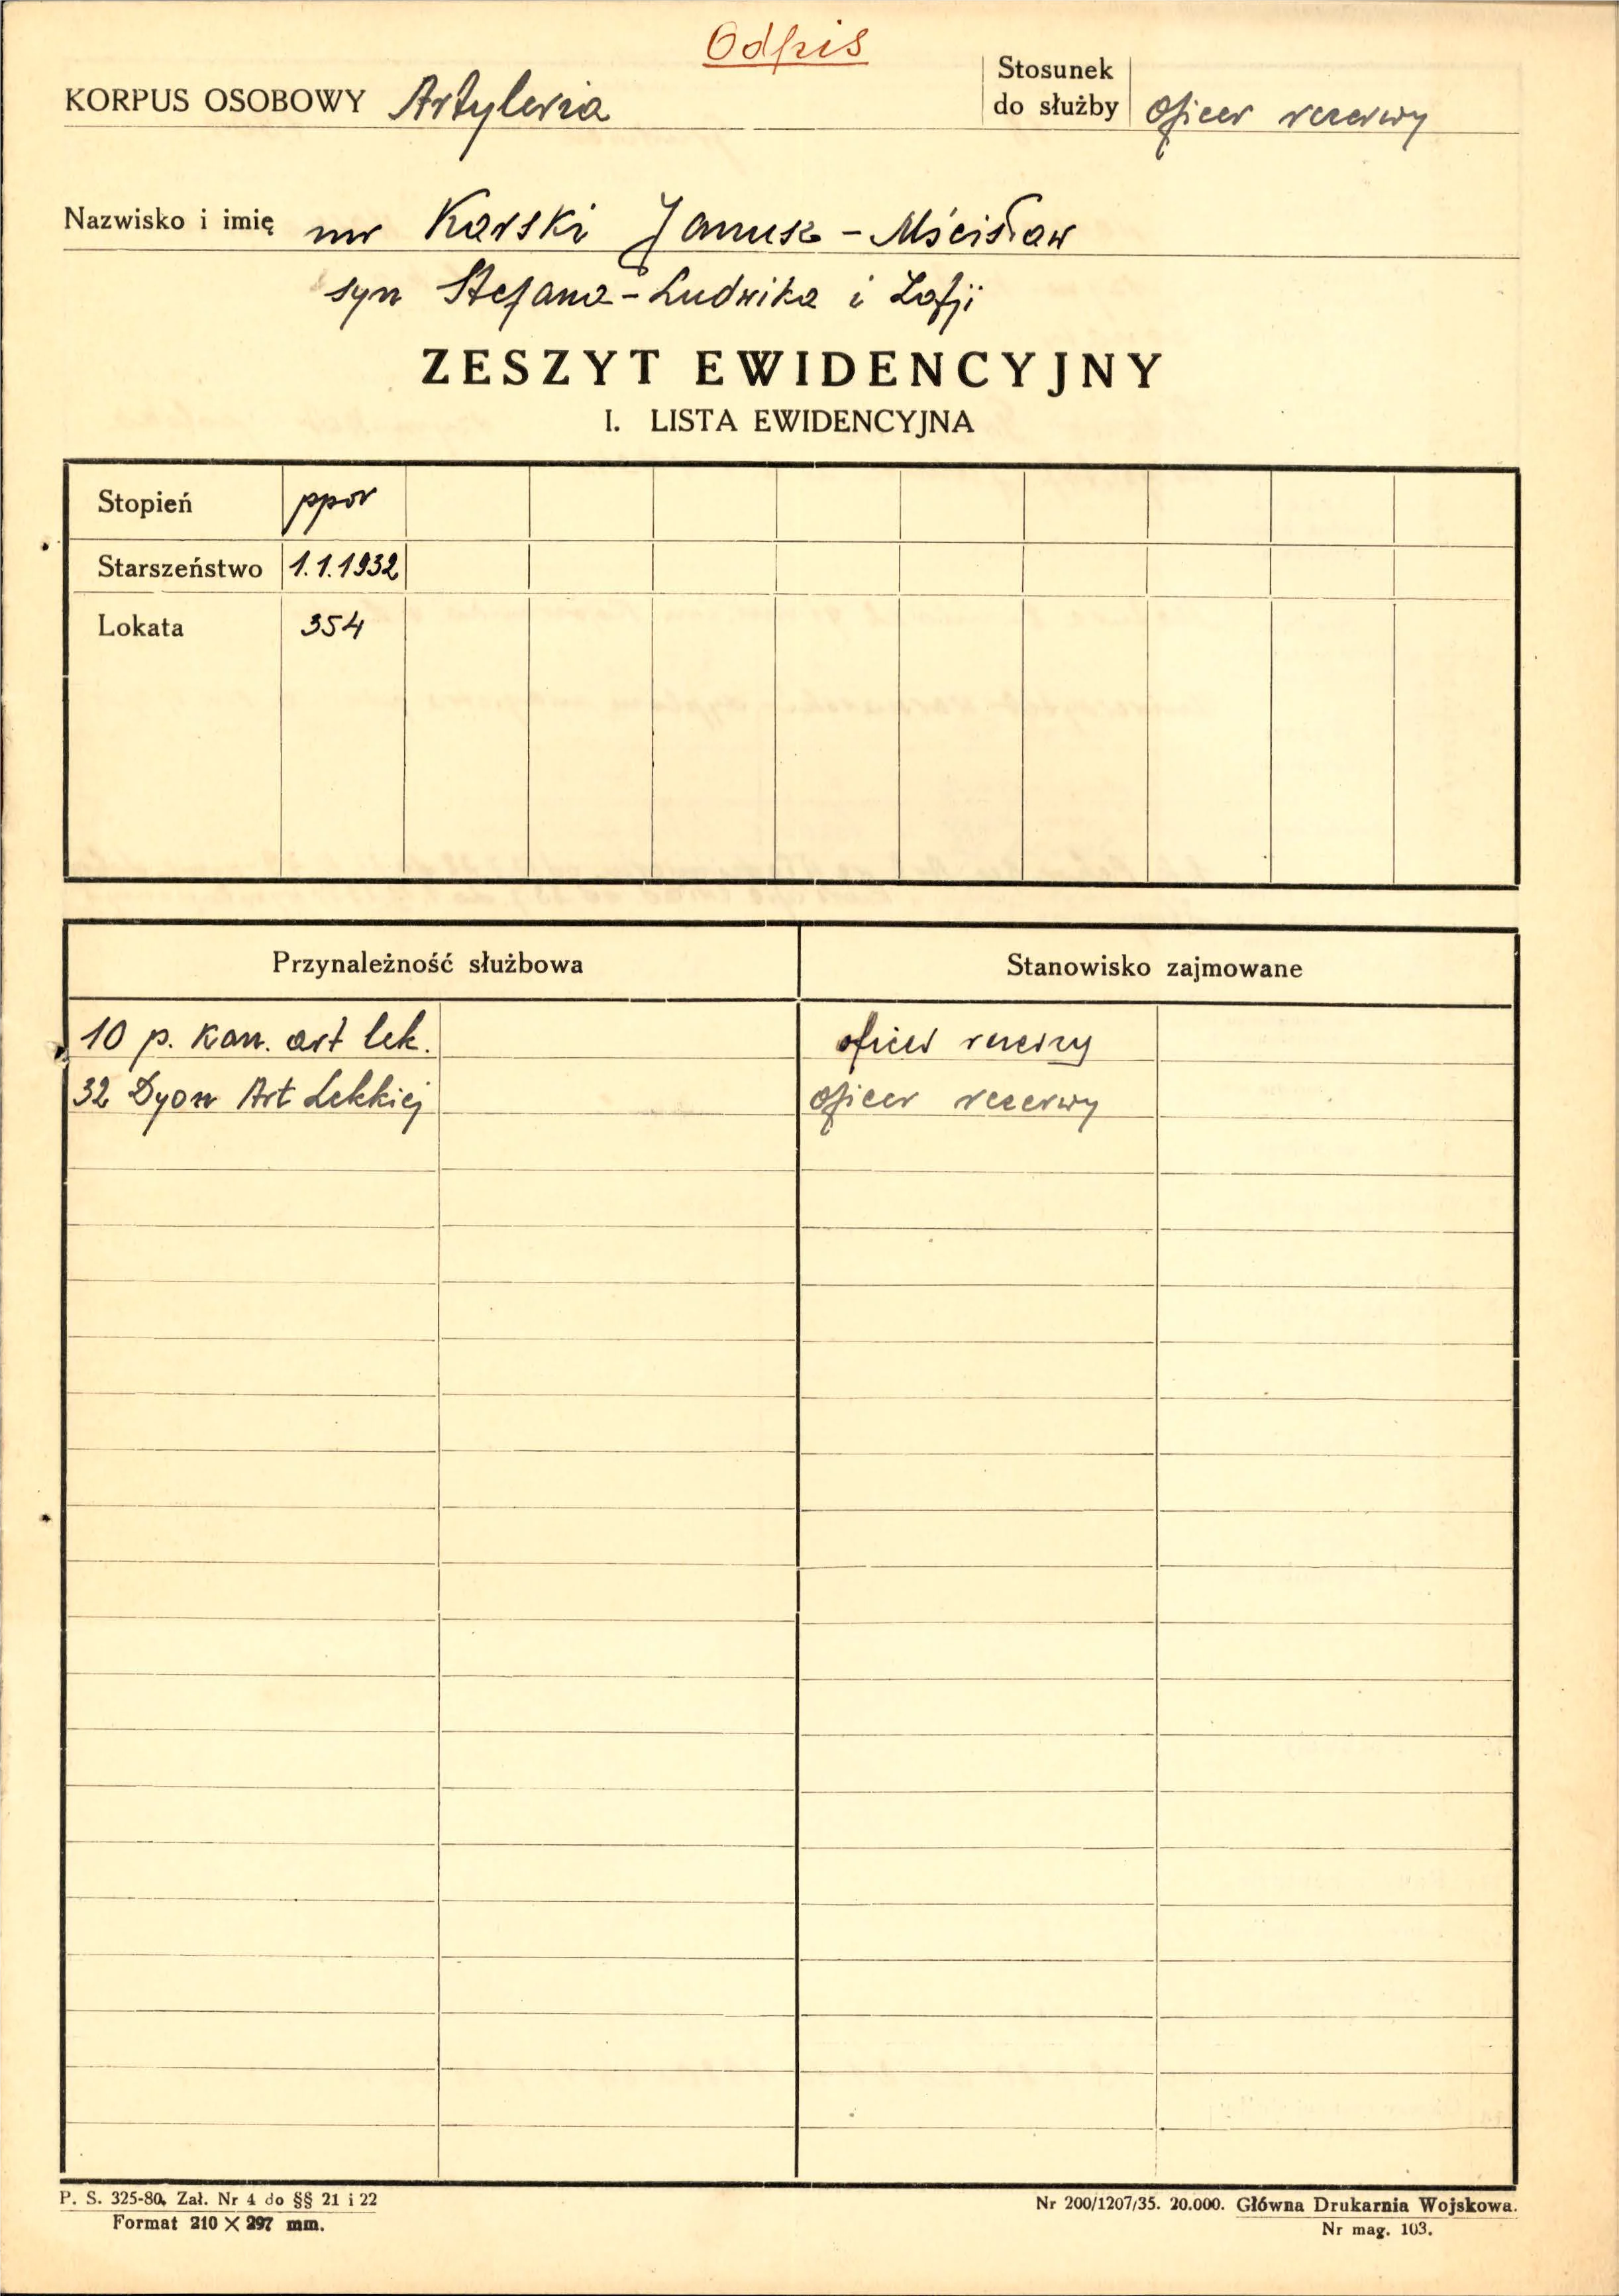 Odpis
KORPUS OSOBOWY Artyleria
Stosunek do służby oficer rezerwy
Nazwisko i imię mr Karski Janusz - Mścisław
syn Stefana - Ludwika i Zofji
ZESZYT EWIDENCYJNY
I. LISTA EWIDENCYJNA
Stopień ppor
Starszeństwo 1.1.1932
Lokata 354
Przynależność służbowa Stanowisko zajmowane
10 p. kan. art lek. oficer rezerwy
32 Dyon Art Lekkiej oficer rezerwy
P. S. 325-80. Zał. Nr 4 do §§ 21 i 22
Format 210 X 297 mm.
Nr 200/1207/35. 20.000. Główna Drukarnia Wojskowa.
Nr mag. 103.